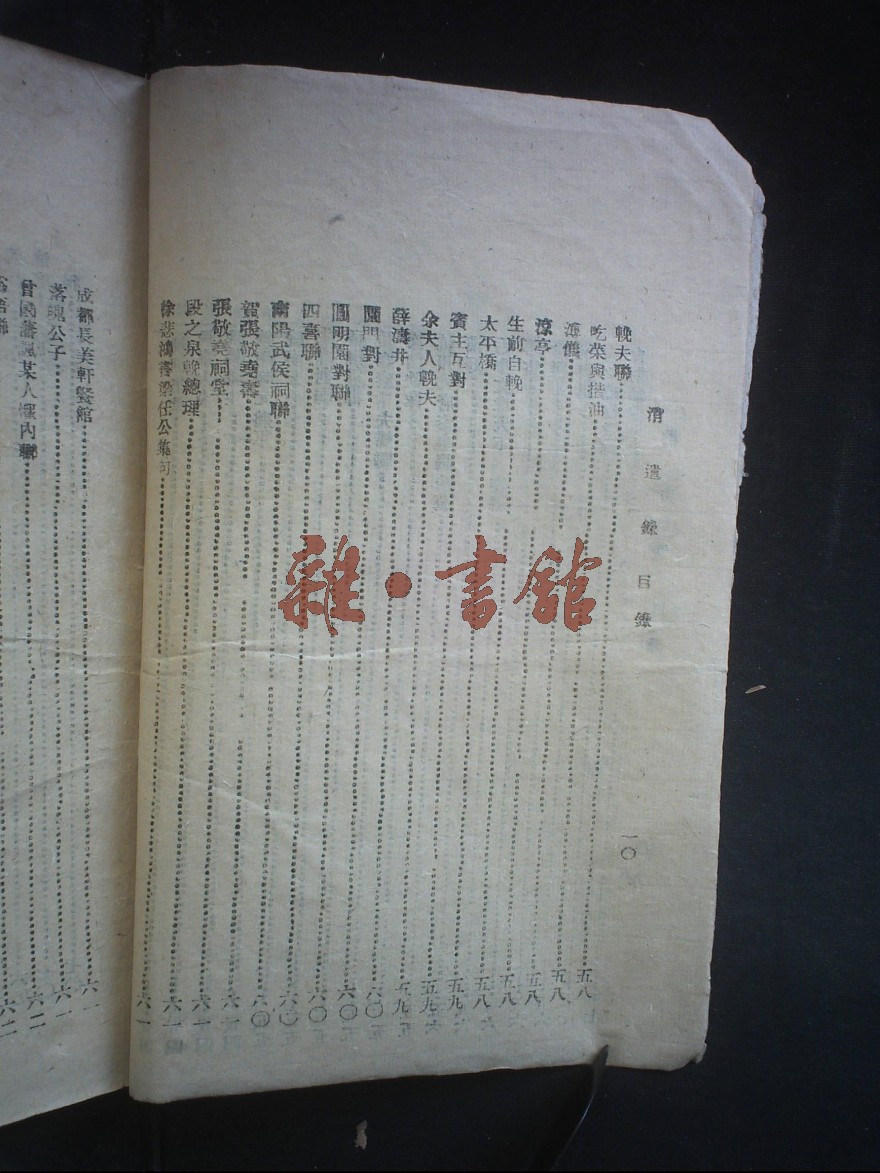 消遣錄目錄 一〇
輓夫聯 五八
吃菜與揩油 五八
儀 五八
涼亭 五八
生前自輓 五八
太平橋 五九
賓主互對 五九
余夫人輓夫 五九
薛濤井 六〇
門對 六〇
圓明園對聯 六〇
四喜聯 六〇
南陽武侯祠聯 六〇
賀張敬堯壽 六一
張敬堯祠堂 六一
段之泉輓總理 六一
徐悲鴻 梁任公集句 六一
成都長美軒餐館 六一
落魂公子 六一
曾國藩諷某人懼內聯 六二
聯 六二
雜·書舘